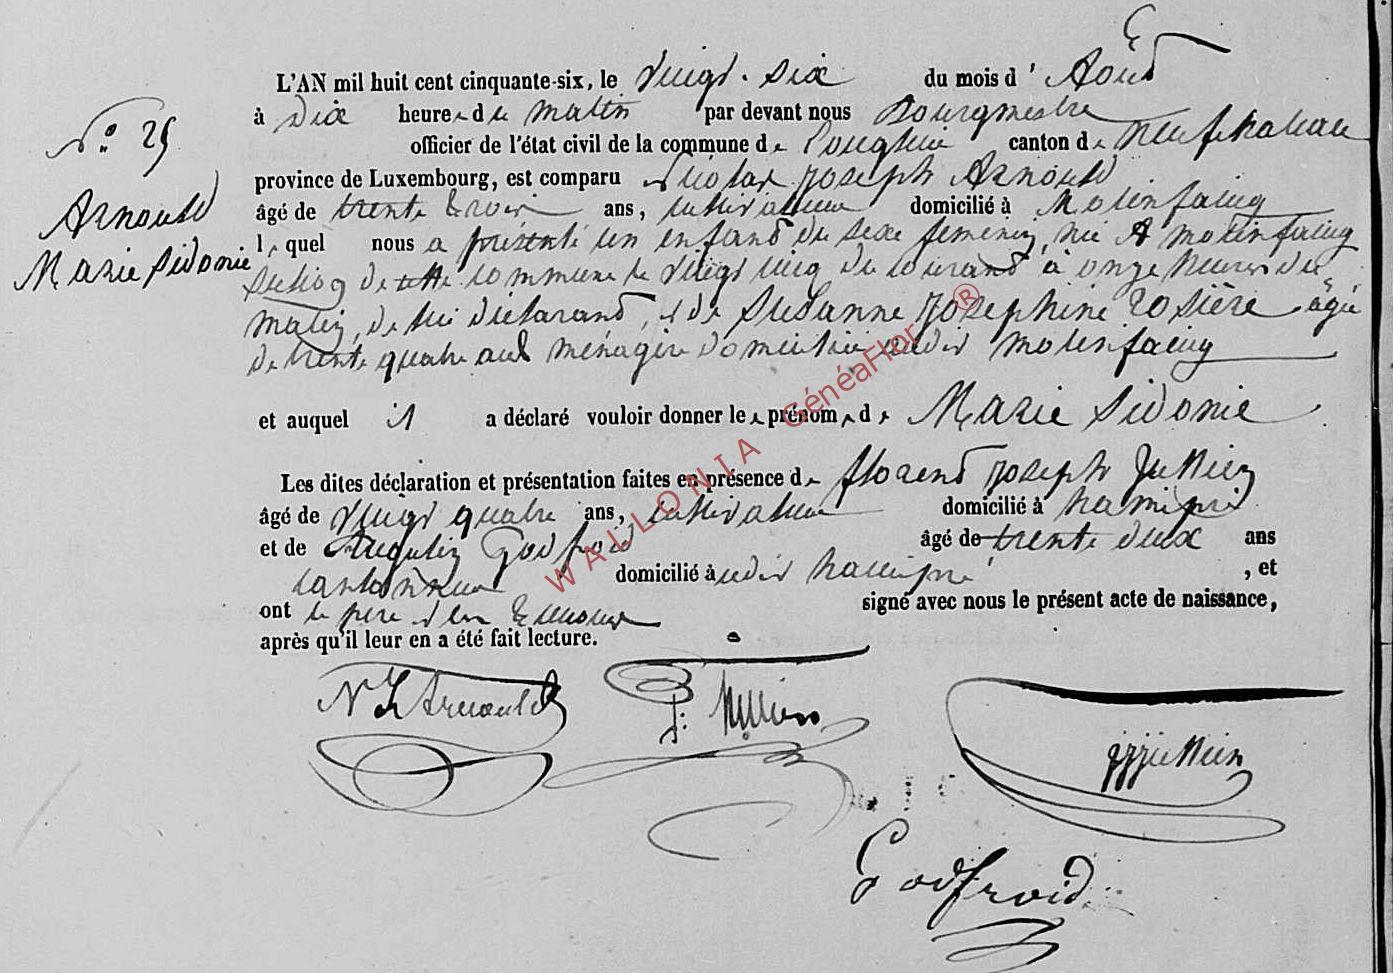 L'AN mil huit cent cinquante-six, le vingt. six du mois d' Août
à dix heures du matin par devant nous Bourgmestre
N° 25 officier de l'état civil de la commune de Longlier canton de Neufchateau
province de Luxembourg, est comparu Nicolas Joseph Arnould
Arnould âgé de trente trois ans, cultivateur domicilié à Molinfaing
Marie Sidonie lequel nous a présenté un enfant du sexe feminin, née A molinfaing
section de cette commune le vingt cinq du courant à onze heures du
matin, de lui déclarant, et de Susanne Josephine Rosière âgée
de trente quatre ans ménagère domiciliée audit molinfaing
et auquel il a déclaré vouloir donner les prénoms de Marie Sidonie
Les dites déclaration et présentation faites en présence de florent Joseph Jullien
âgé de vingt quatre ans, cultivateur domicilié à hamipré
et de Augustin Godfroid âgé de trente deux ans
cantonnier domicilié à audit hamipré , et
ont le père et les témoins signé avec nous le présent acte de naissance,
après qu'il leur en a été fait lecture.
N J Arnould
Godfroid
WALLONIA GénéaFlor ®